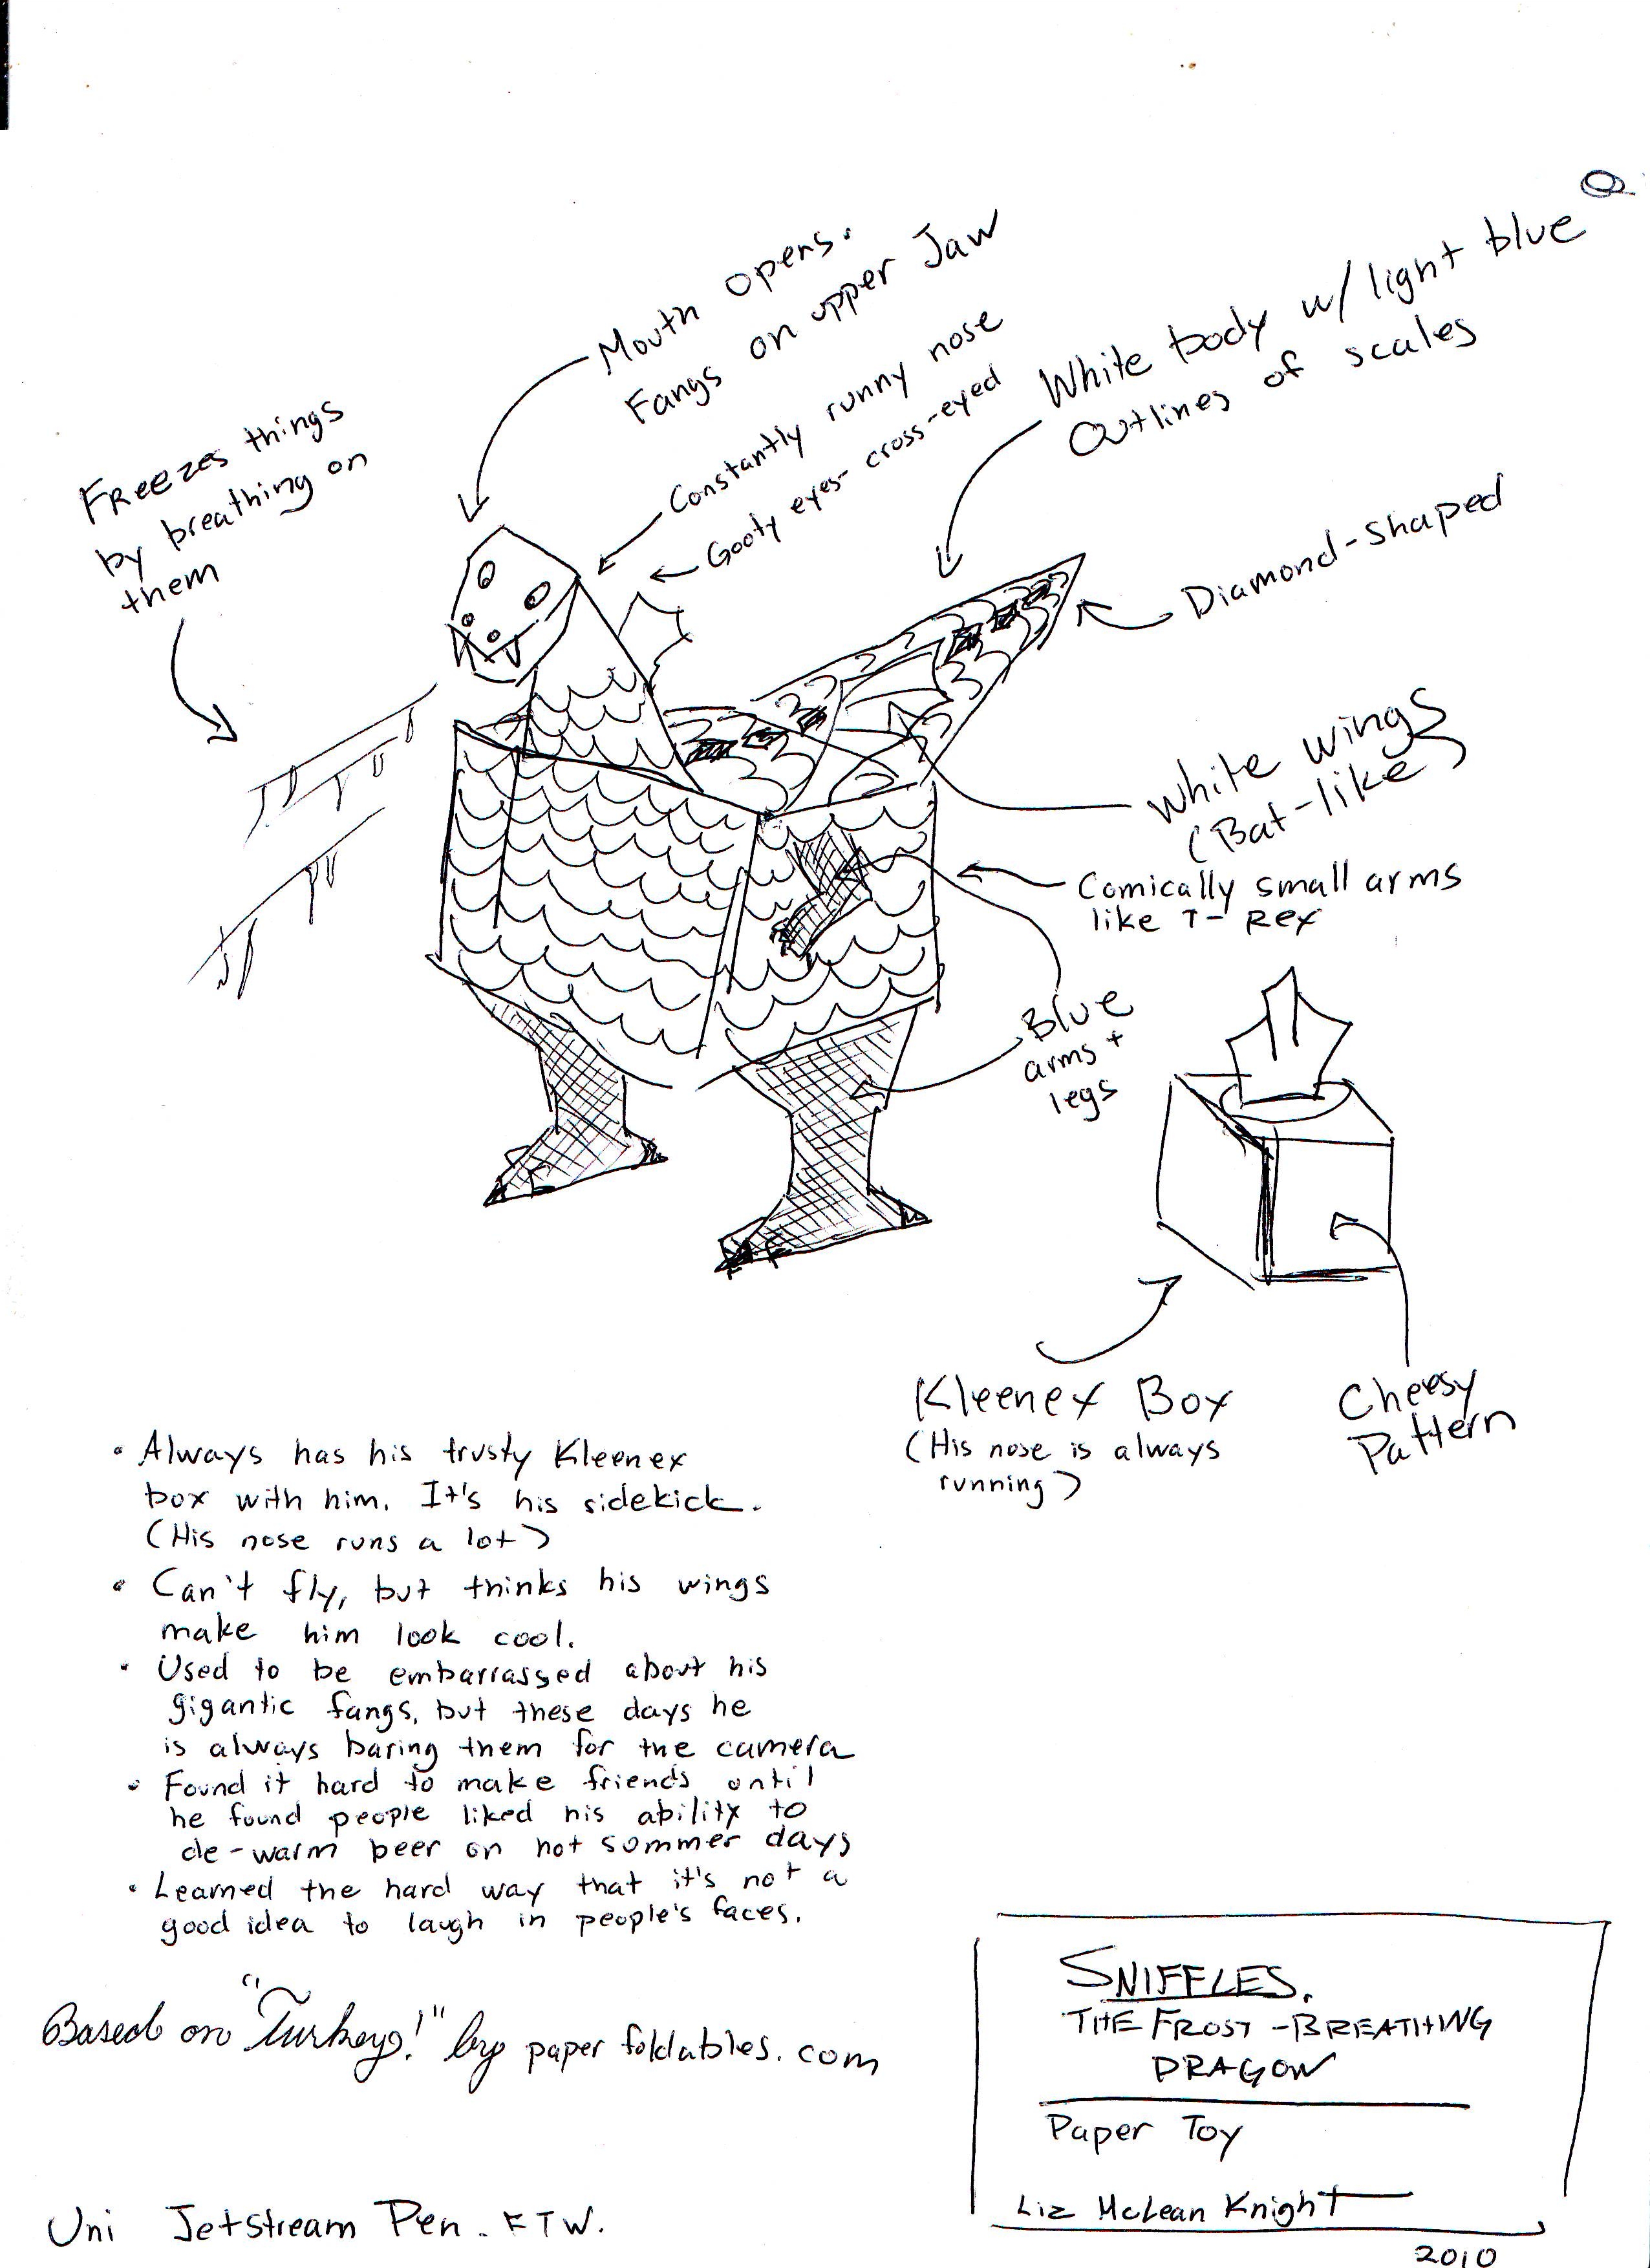 Mouth opens.
Fangs on upper Jaw
Constantly runny nose
Goofy eyes- cross-eyed
White body w/ light blue
Outlines of scales
Freezes things
by breathing on
them
Diamond-shaped
White wings
(Bat-like)
Comically small arms
like T-Rex
Blue
arms +
legs
Kleenex Box
(His nose is always
running)
Cheesy
Pattern
• Always has his trusty Kleenex
box with him. It's his sidekick.
(His nose runs a lot)
• Can't fly, but thinks his wings
make him look cool.
• Used to be embarrassed about his
gigantic fangs, but these days he
is always baring them for the camera
• Found it hard to make friends until
he found people liked his ability to
de-warm beer on hot summer days
• Learned the hard way that it's not a
good idea to laugh in people's faces.
Based on "Turkey!" by paperfoldables.com
Uni Jetstream Pen. FTW.
SNIFFLES.
THE FROST-BREATHING
DRAGON
Paper Toy
Liz McLean Knight
2010